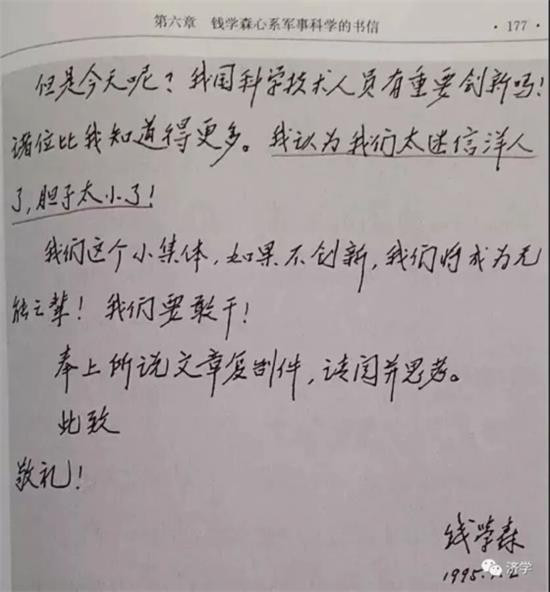 第六章 钱学森心系军事科学的书信 ·177·
但是今天呢？我国科学技术人员有重要创新吗！
诸位比我知道得更多。我认为我们太迷信洋人
了，胆子太小了！
我们这个小集体，如果不创新，我们将成为无
能之辈！我们要敢干！
奉上所说文章复制件，请阅并思考。
此致
敬礼！
钱学森
济学
1995.1.2